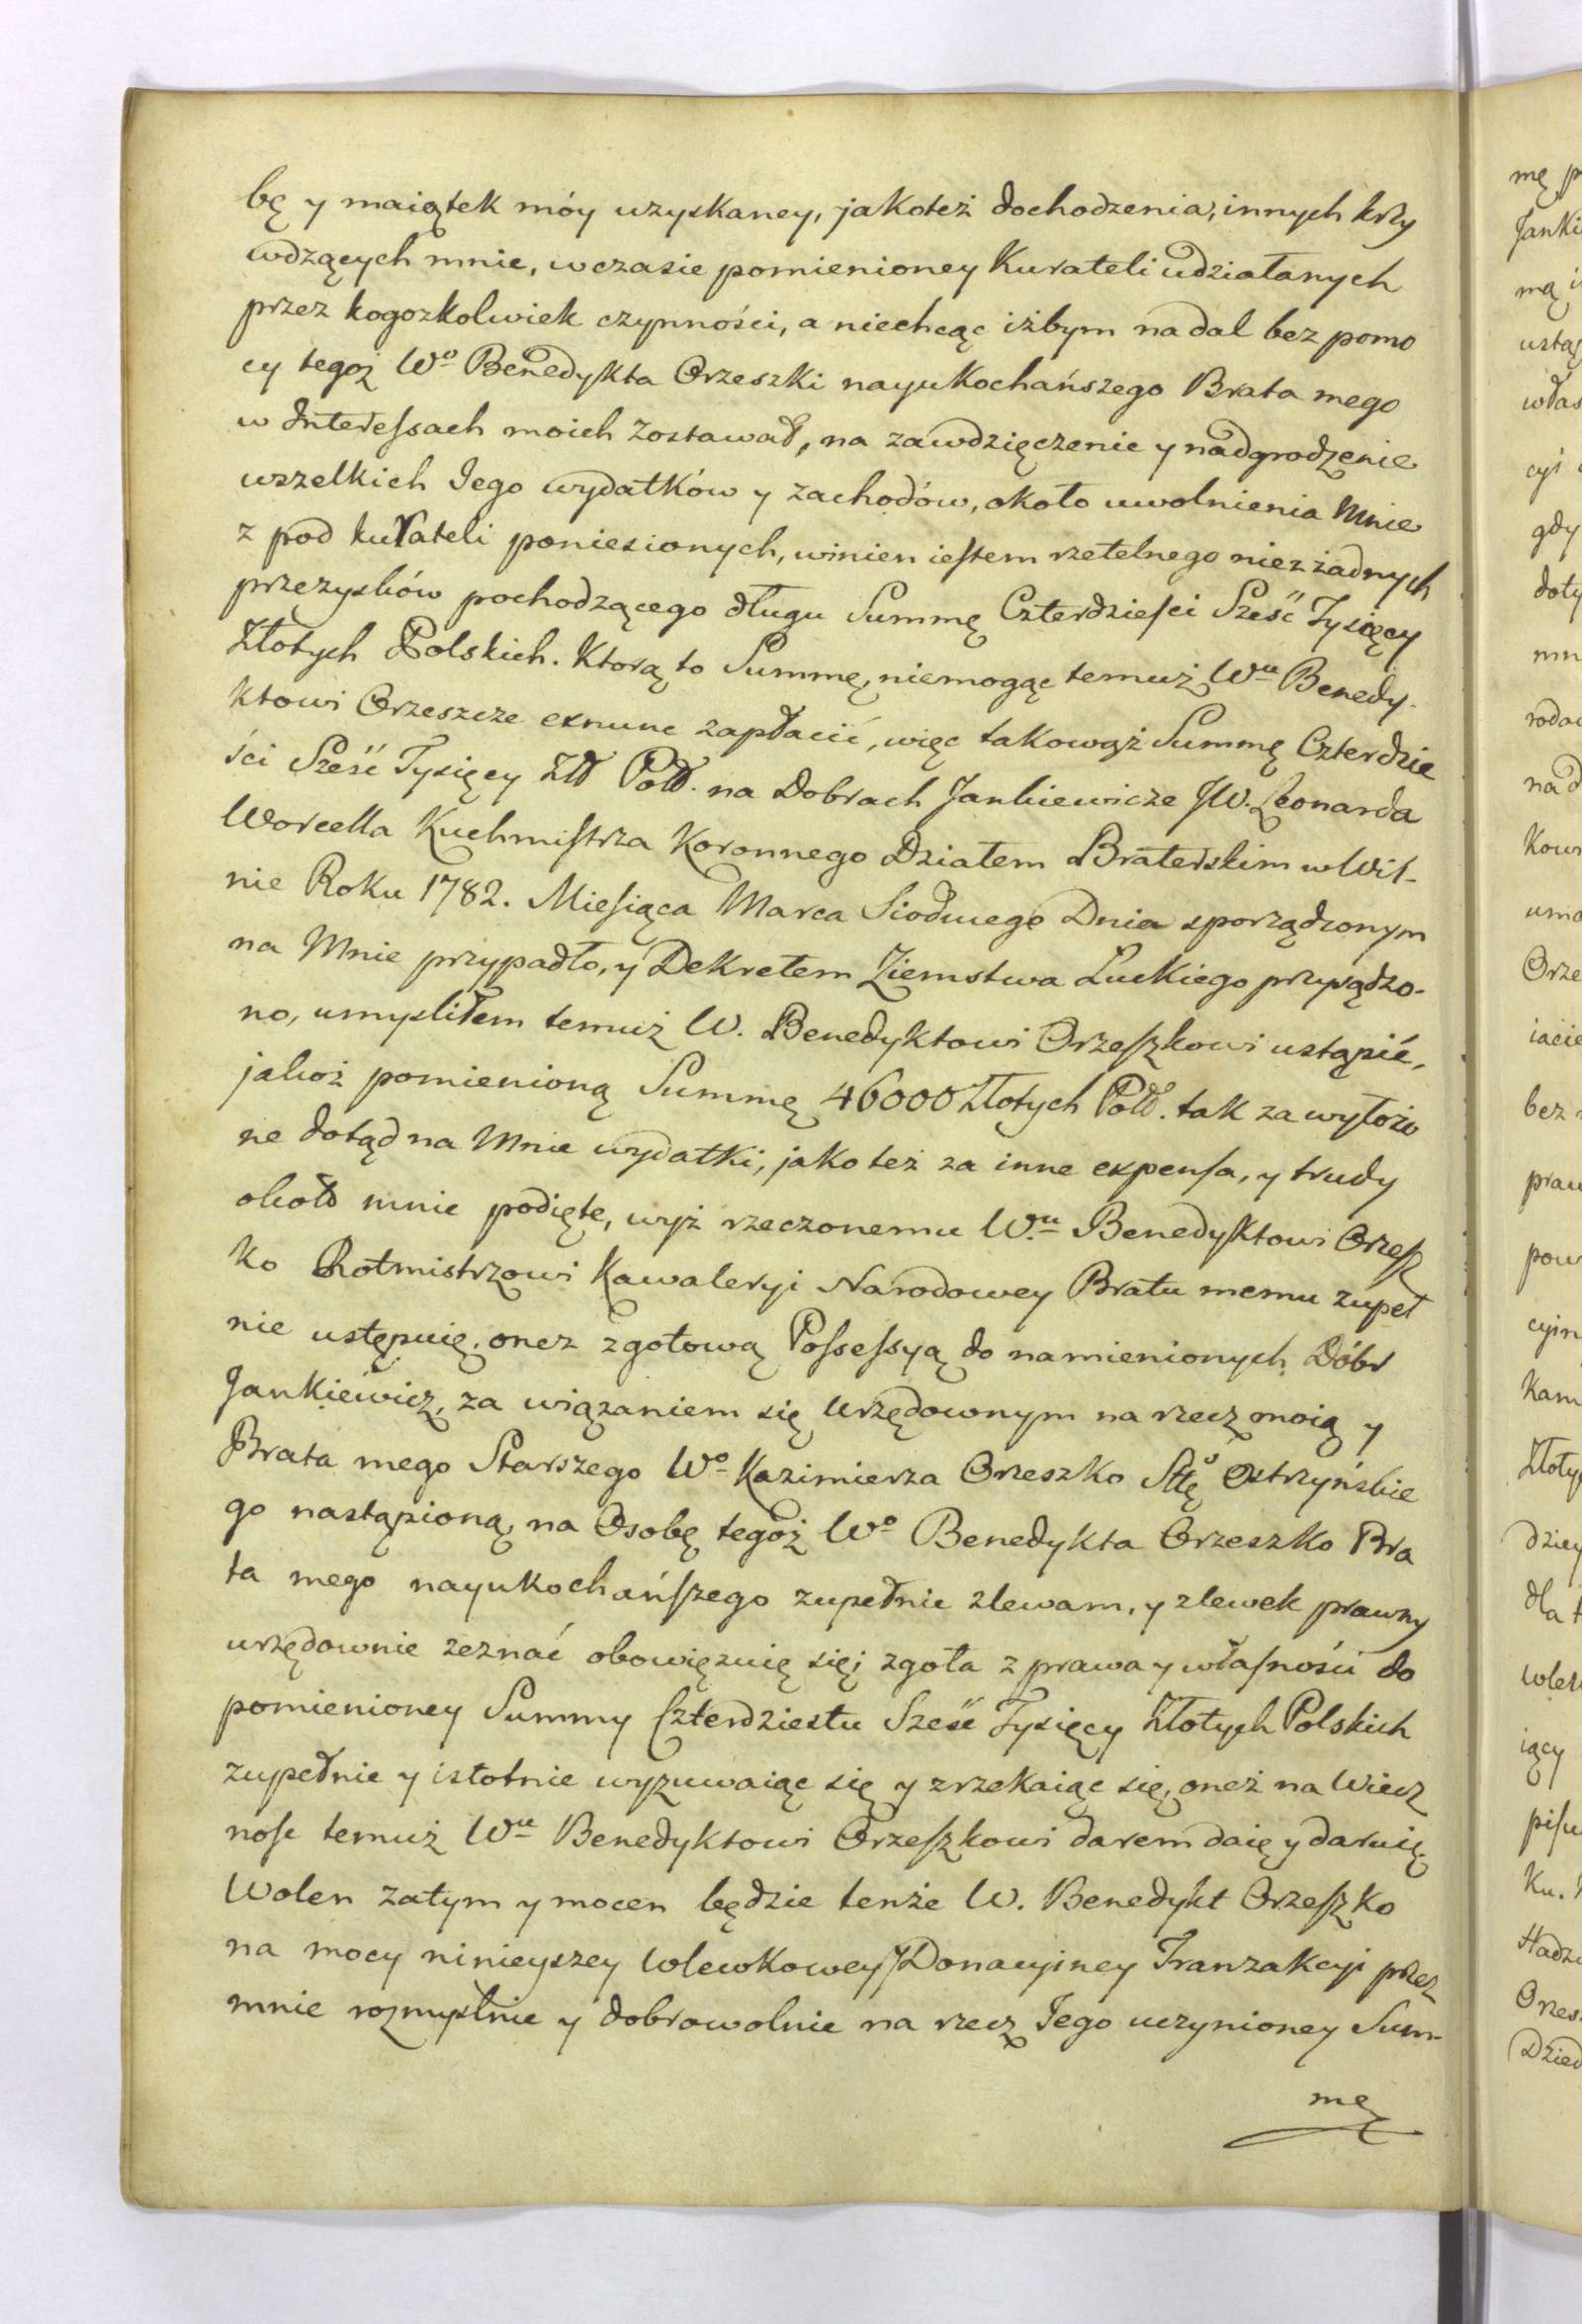 bę y maiątek móy uzyskaney, jakoteż dochodzenia, innych krzy
wdzących mnie, w czasie pomienioney Kurateli udziałanych
przez kogozkolwiek czynności, a niechcąc iżbym nadal bez pomo
cy tegoż Wo Benedykta Orzeszki nayukochańszego Brata mego
w Interessach moich zostawał, na zawdzięczenie y nadgrodzenie
wszelkich Jego wydatków y zachodów, około uwolnienia Mnie
z pod kurateli poniesionych, winien iestem rzetelnego niez żadnych
przezysków pochodzącego długu Summę Czterdzieści Sześć Tysięcy
Złotych Polskich. Ktorą to Summę, niemogąc temuż Wu Benedy-
ktowi Orzeszcze exnunc zapłacić, więc takowąż Summę Czterdzie
ści Sześć Tysięcy Złł Poll. na Dobrach Jankiewicze JW. Leonarda
Worcella Kuchmistrza Koronnego Działem Braterskim w Wil-
nie Roku 1782. Miesiąca Marca Siodmego Dnia sporządzonym
na Mnie przypadło, y Dekretem Ziemstwa Łuckiego przysądzo-
no, umysliłem temuż W. Benedyktowi Orzeszkowi ustąpić,
jakoż pomienioną Summę 46000 Złotych Poll. tak za wyłożo
ne dotąd na Mnie wydatki, jako też za inne expensa, y trudy
około mnie podięte, wyż rzeczonemu W.u Benedyktowi Orzesz
ko Rotmistrzowi Kawaleryi Narodowey Bratu memu zupeł
nie ustępuię, onez z gotową Possessyą do namienionych Dóbr
Jankiewicz, za wiązaniem się Urzędownym na rzecz moią y
Brata mego Starszego Wo Kazimierza Orzeszko Sttę Ostrzyńskie
go nastąpioną, na Osobę tegoż Wo Benedykta Orzeszko Bra
ta mego nayukochańszego zupełnie zlewam, y zlewek prawny
urzędownie zeznać obowięzuię się; zgoła z prawa y własności do
pomienioney Summy Czterdziestu Sześć Tysięcy Złotych Polskich
zupełnie y istotnie wyzuwaiąc się y zrzekaiąc się, oneż na Wiecz
nosc temuż Wu Benedyktowi Orzeszkowi darem daię y daruię.
Wolen zatym y mocen będzie tenże W. Benedykt Orzeszko
na mocy ninieyszey Wlewkowey y Donacyiney Tranzakcyi przez
mnie rozmyslnie y dobrowolnie na rzecz Jego uczynioney Sum-
mę